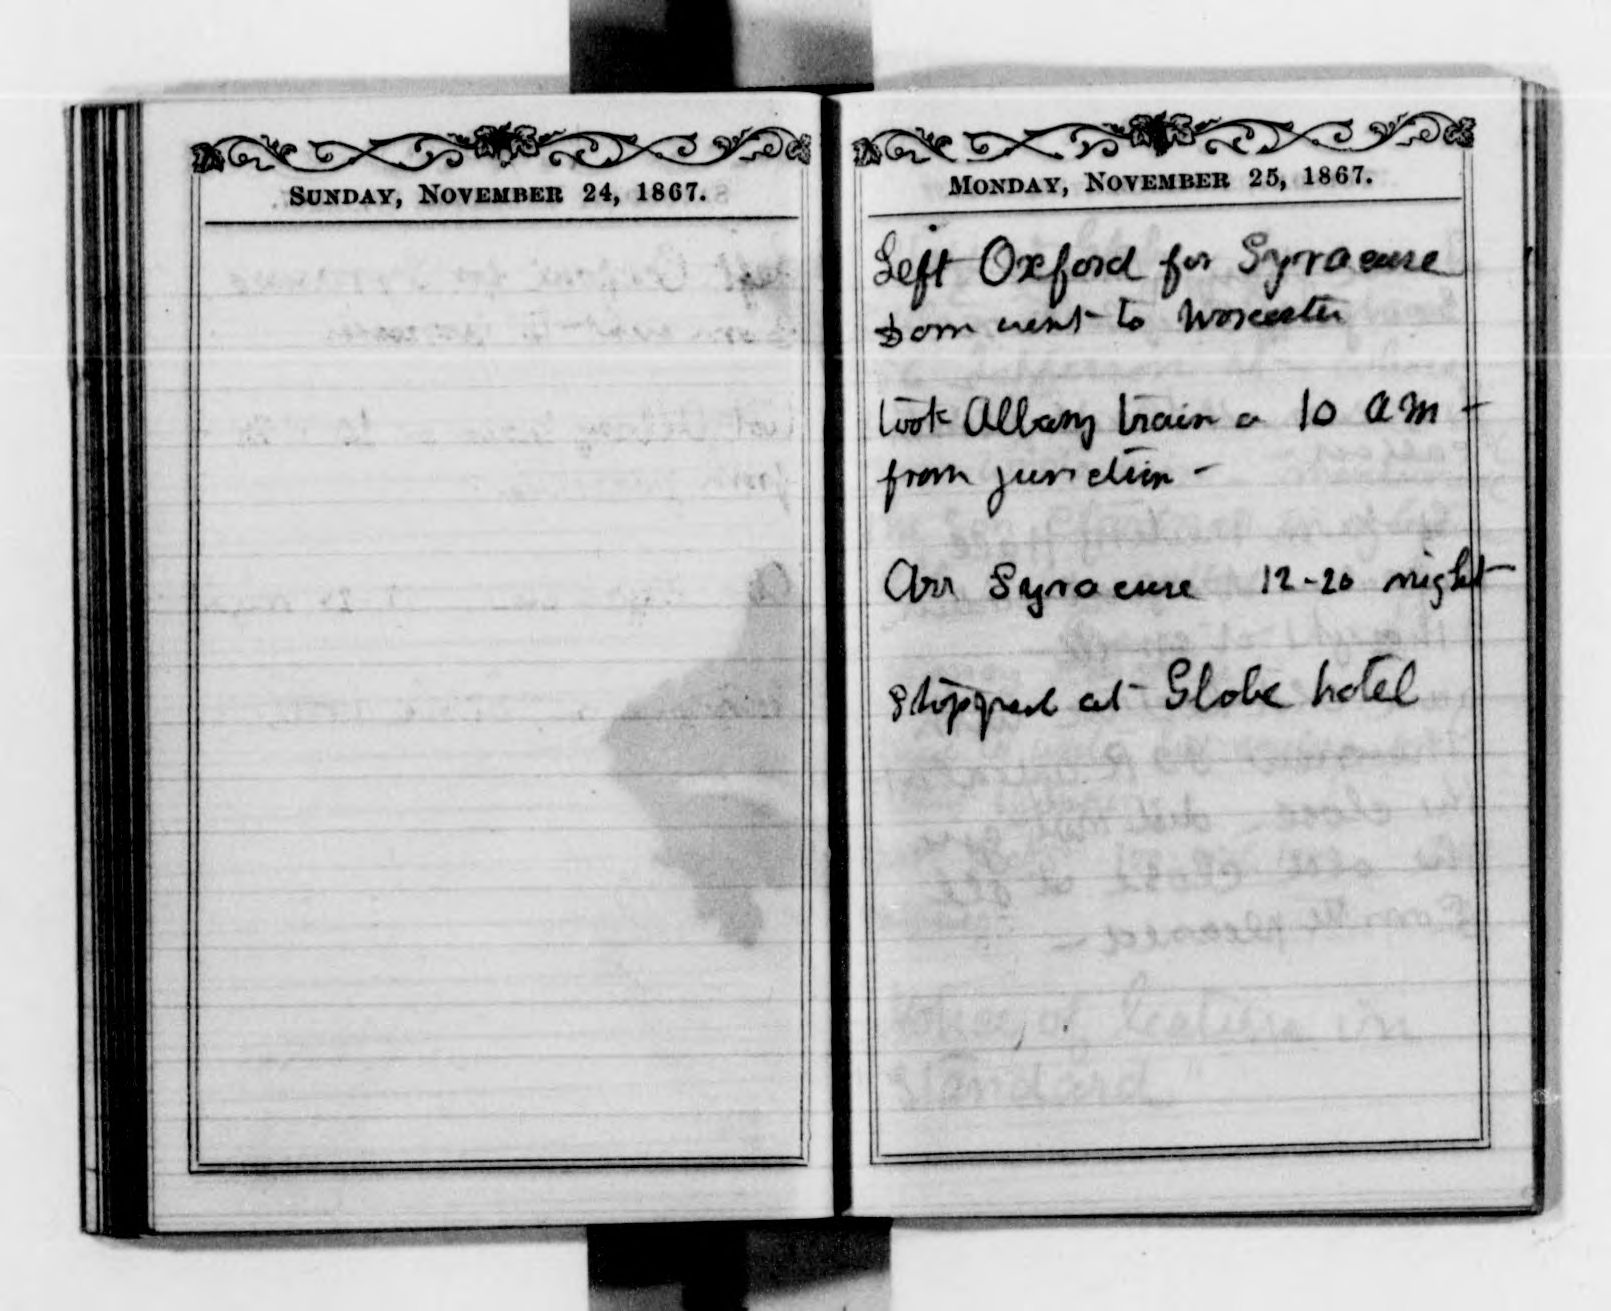 SUNDAY, NOVEMBER 24, 1867.
MONDAY, NOVEMBER 25, 1867.
Left Oxford for Syracuse
went to Worcester
took Albany train a 10 AM -
from junction -
Arr Syracuse 12-20 night
stopped at Globe hotel